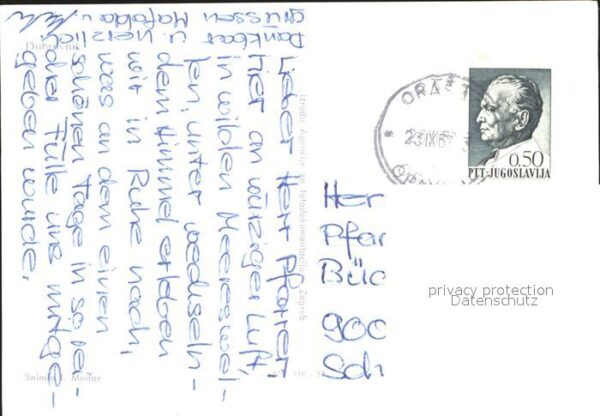 Dubrovnik
Lieber Herr Pfarrer,
hier an würziger Luft,
in wilden Meereswel-
len, unter wechseln-
dem Himmel erleben
wir in Ruhe nach,
was an dem einen
schönen Tage in so rei-
cher Fülle uns mitge-
geben wurde.
Dankbar u. herzlich
grüssen Mafalda u.
Izrada Agencija za fotodokumentaciju Zagreb
Snimio I. Medar
23.IX.67
0.50
PTT-JUGOSLAVIJA
Her
Pfar
Büc
900
Sch
privacy protection
Datenschutz